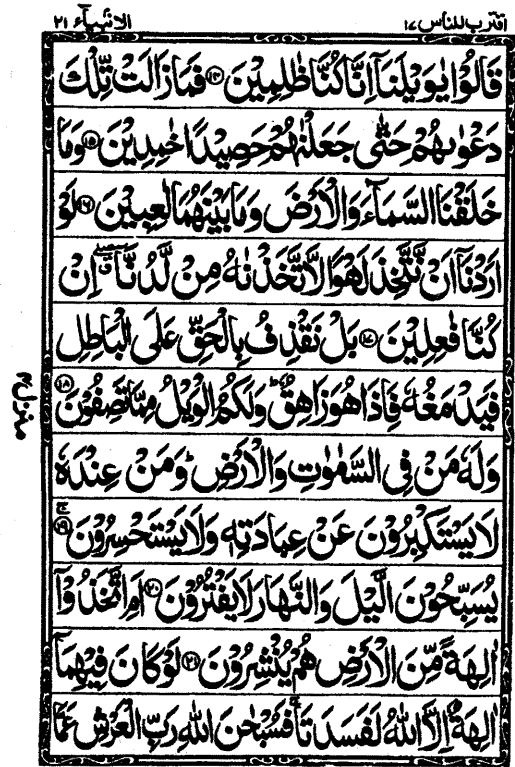 اقترب للناس ١٧
الانبياء ٢١
قَالُوْا يٰوَيْلَنَآ اِنَّا كُنَّا ظٰلِمِيْنَ ﴿١٤﴾ فَمَا زَالَتْ تِّلْكَ
دَعْوٰىهُمْ حَتّٰى جَعَلْنٰهُمْ حَصِيْدًا خٰمِدِيْنَ ﴿١٥﴾ وَمَا
خَلَقْنَا السَّمَآءَ وَالْاَرْضَ وَمَا بَيْنَهُمَا لٰعِبِيْنَ ﴿١٦﴾ لَوْ
اَرَدْنَآ اَنْ نَّتَّخِذَ لَهْوًا لَّاتَّخَذْنٰهُ مِنْ لَّدُنَّآ ۖ اِنْ
كُنَّا فٰعِلِيْنَ ﴿١٧﴾ بَلْ نَقْذِفُ بِالْحَقِّ عَلَى الْبَاطِلِ
فَيَدْمَغُهٗ فَاِذَا هُوَ زَاهِقٌ ؕ وَلَكُمُ الْوَيْلُ مِمَّا تَصِفُوْنَ ﴿١٨﴾
وَلَهٗ مَنْ فِى السَّمٰوٰتِ وَالْاَرْضِ ؕ وَمَنْ عِنْدَهٗ
لَا يَسْتَكْبِرُوْنَ عَنْ عِبَادَتِهٖ وَلَا يَسْتَحْسِرُوْنَ ۚ ﴿١٩﴾
يُسَبِّحُوْنَ الَّيْلَ وَالنَّهَارَ لَا يَفْتُرُوْنَ ﴿٢٠﴾ اَمِ اتَّخَذُوْٓا
اٰلِهَةً مِّنَ الْاَرْضِ هُمْ يُنْشِرُوْنَ ﴿٢١﴾ لَوْ كَانَ فِيْهِمَآ
اٰلِهَةٌ اِلَّا اللّٰهُ لَفَسَدَتَا ۚ فَسُبْحٰنَ اللّٰهِ رَبِّ الْعَرْشِ عَمَّا
منزل ٤